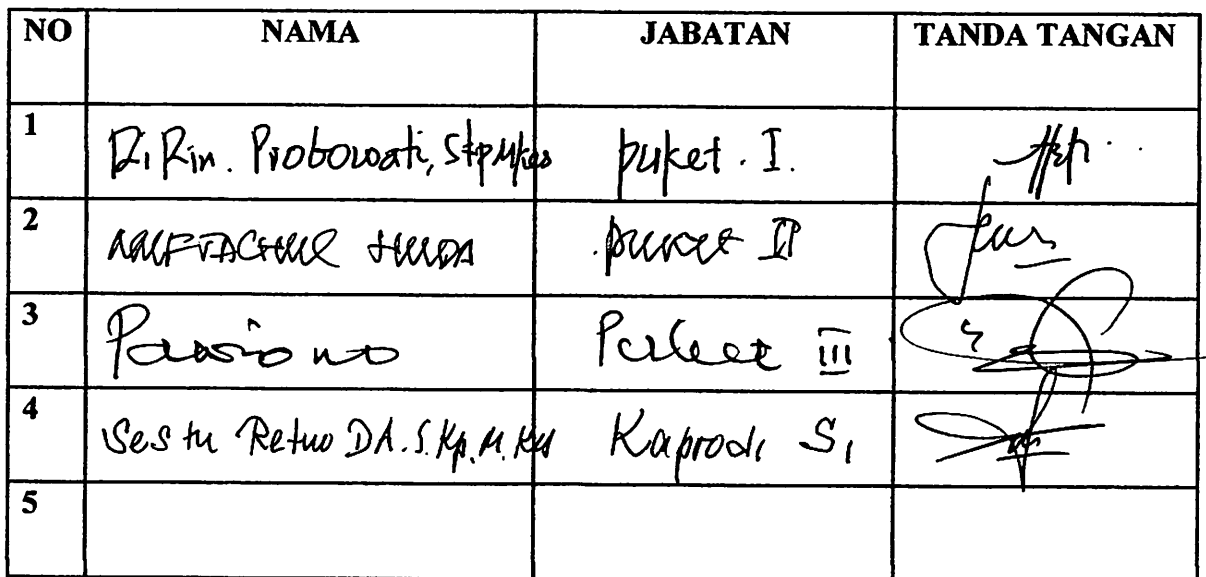 NO NAMA JABATAN TANDA TANGAN
1 Ririn. Probowati, SKp MKes puket. I.
2 MIFTACHUL HUDA puket II
3 Pariono Puket III
4 Sestu Retno DA. S.Kp. M.Kes Kaprodi S1
5